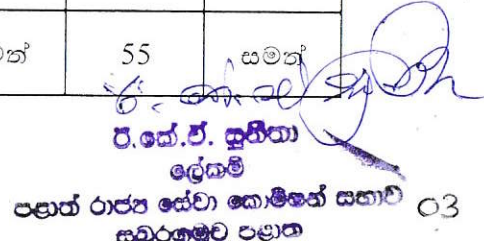 55 සමත්
පී.කේ.ඒ. සුනීතා
ලේකම්
පළාත් රාජ්‍ය සේවා කොමිෂන් සභාව 03
සබරගමුව පළාත